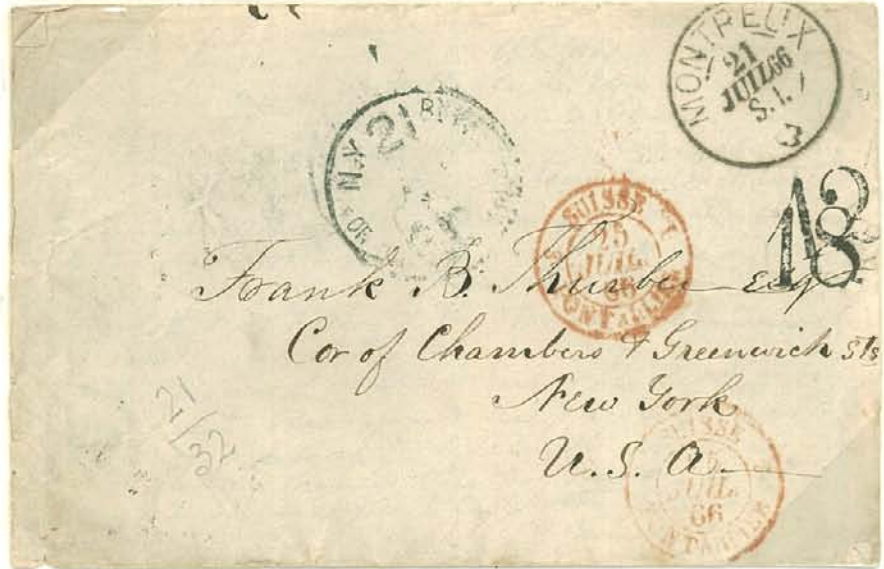 MONTREUX
21
JUIL 66
S. 1.
3
N.Y. 21 BR
OR
SUISSE
15
JUIL.
66
PONTARLIER
18
Frank B. Thurber Esq
Cor of Chambers & Greenwich Sts
New York
U. S. A.
21/32
SUISSE
JUIL.
66
PONTARLIER